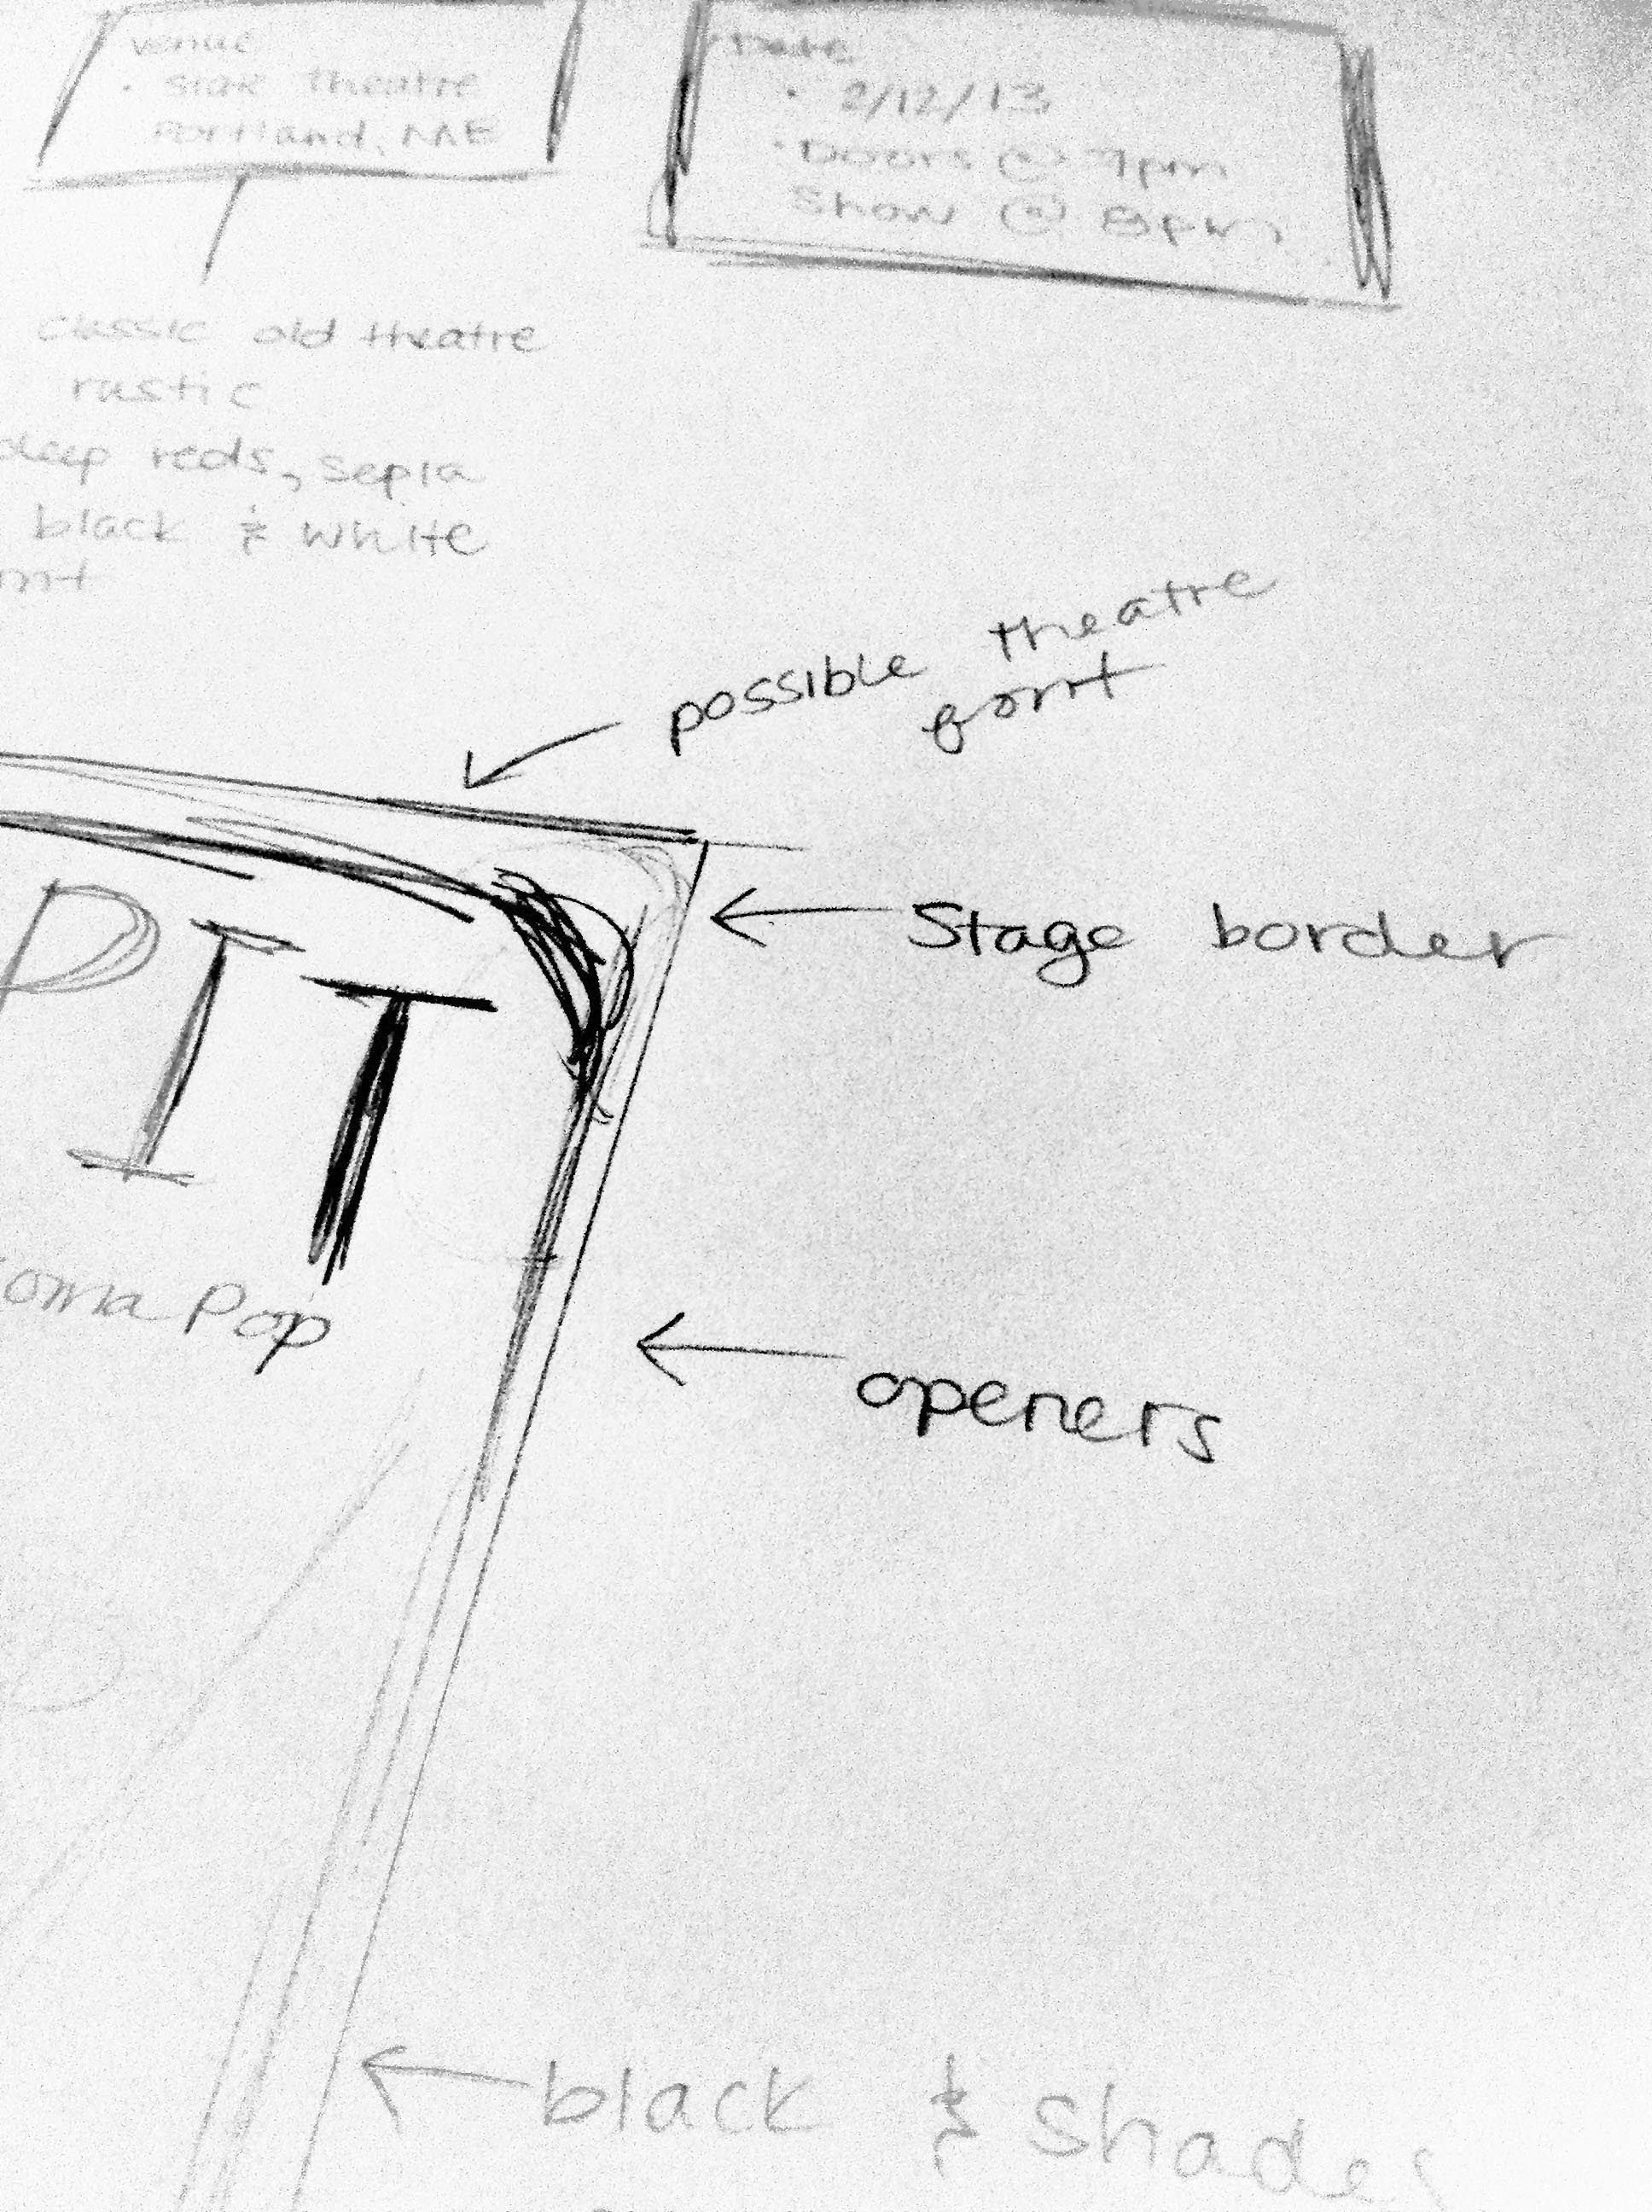 venue
• State theatre
Portland, ME
Date
• 2/12/13
• Doors @ 7pm
Show @ 8pm
classic old theatre
rustic
deep reds, sepia
black & white
possible theatre
front
Stage border
PIT
omaPop
openers
black & shades